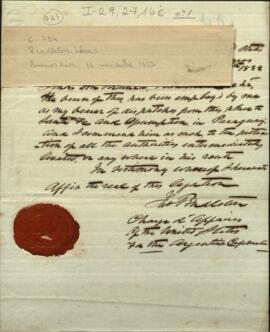 I-29,27,16 č nº1
C-734
Pendleton, John
Buenos Aires 11 noviembre 1852
States
1852
The bearer of this has been employed by me
as my bearer of dispatches from this place to
Santa Fe and Assumption in Paraguay
And I commend him as such to the protec
tion of all the authorities intermediately
located or any where in his route
In testimony whereof I hereunto
Affix the seal of this Legation
Jno Pendleton
Charge d'Affaires
Of the United States
For the Argentine Confederation